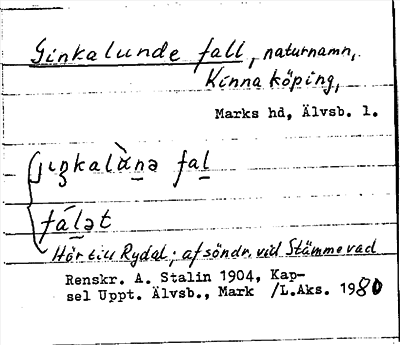 Ginkalunde fall, naturnamn,
Kinna köping,
Marks hd, Älvsb. l.
fal
fálət
Hör till Rydal; afsöndr. vid Stämmevad
Renskr. A. Stalin 1904, Kap-
sel Uppt. Älvsb., Mark /L.Aks. 1980